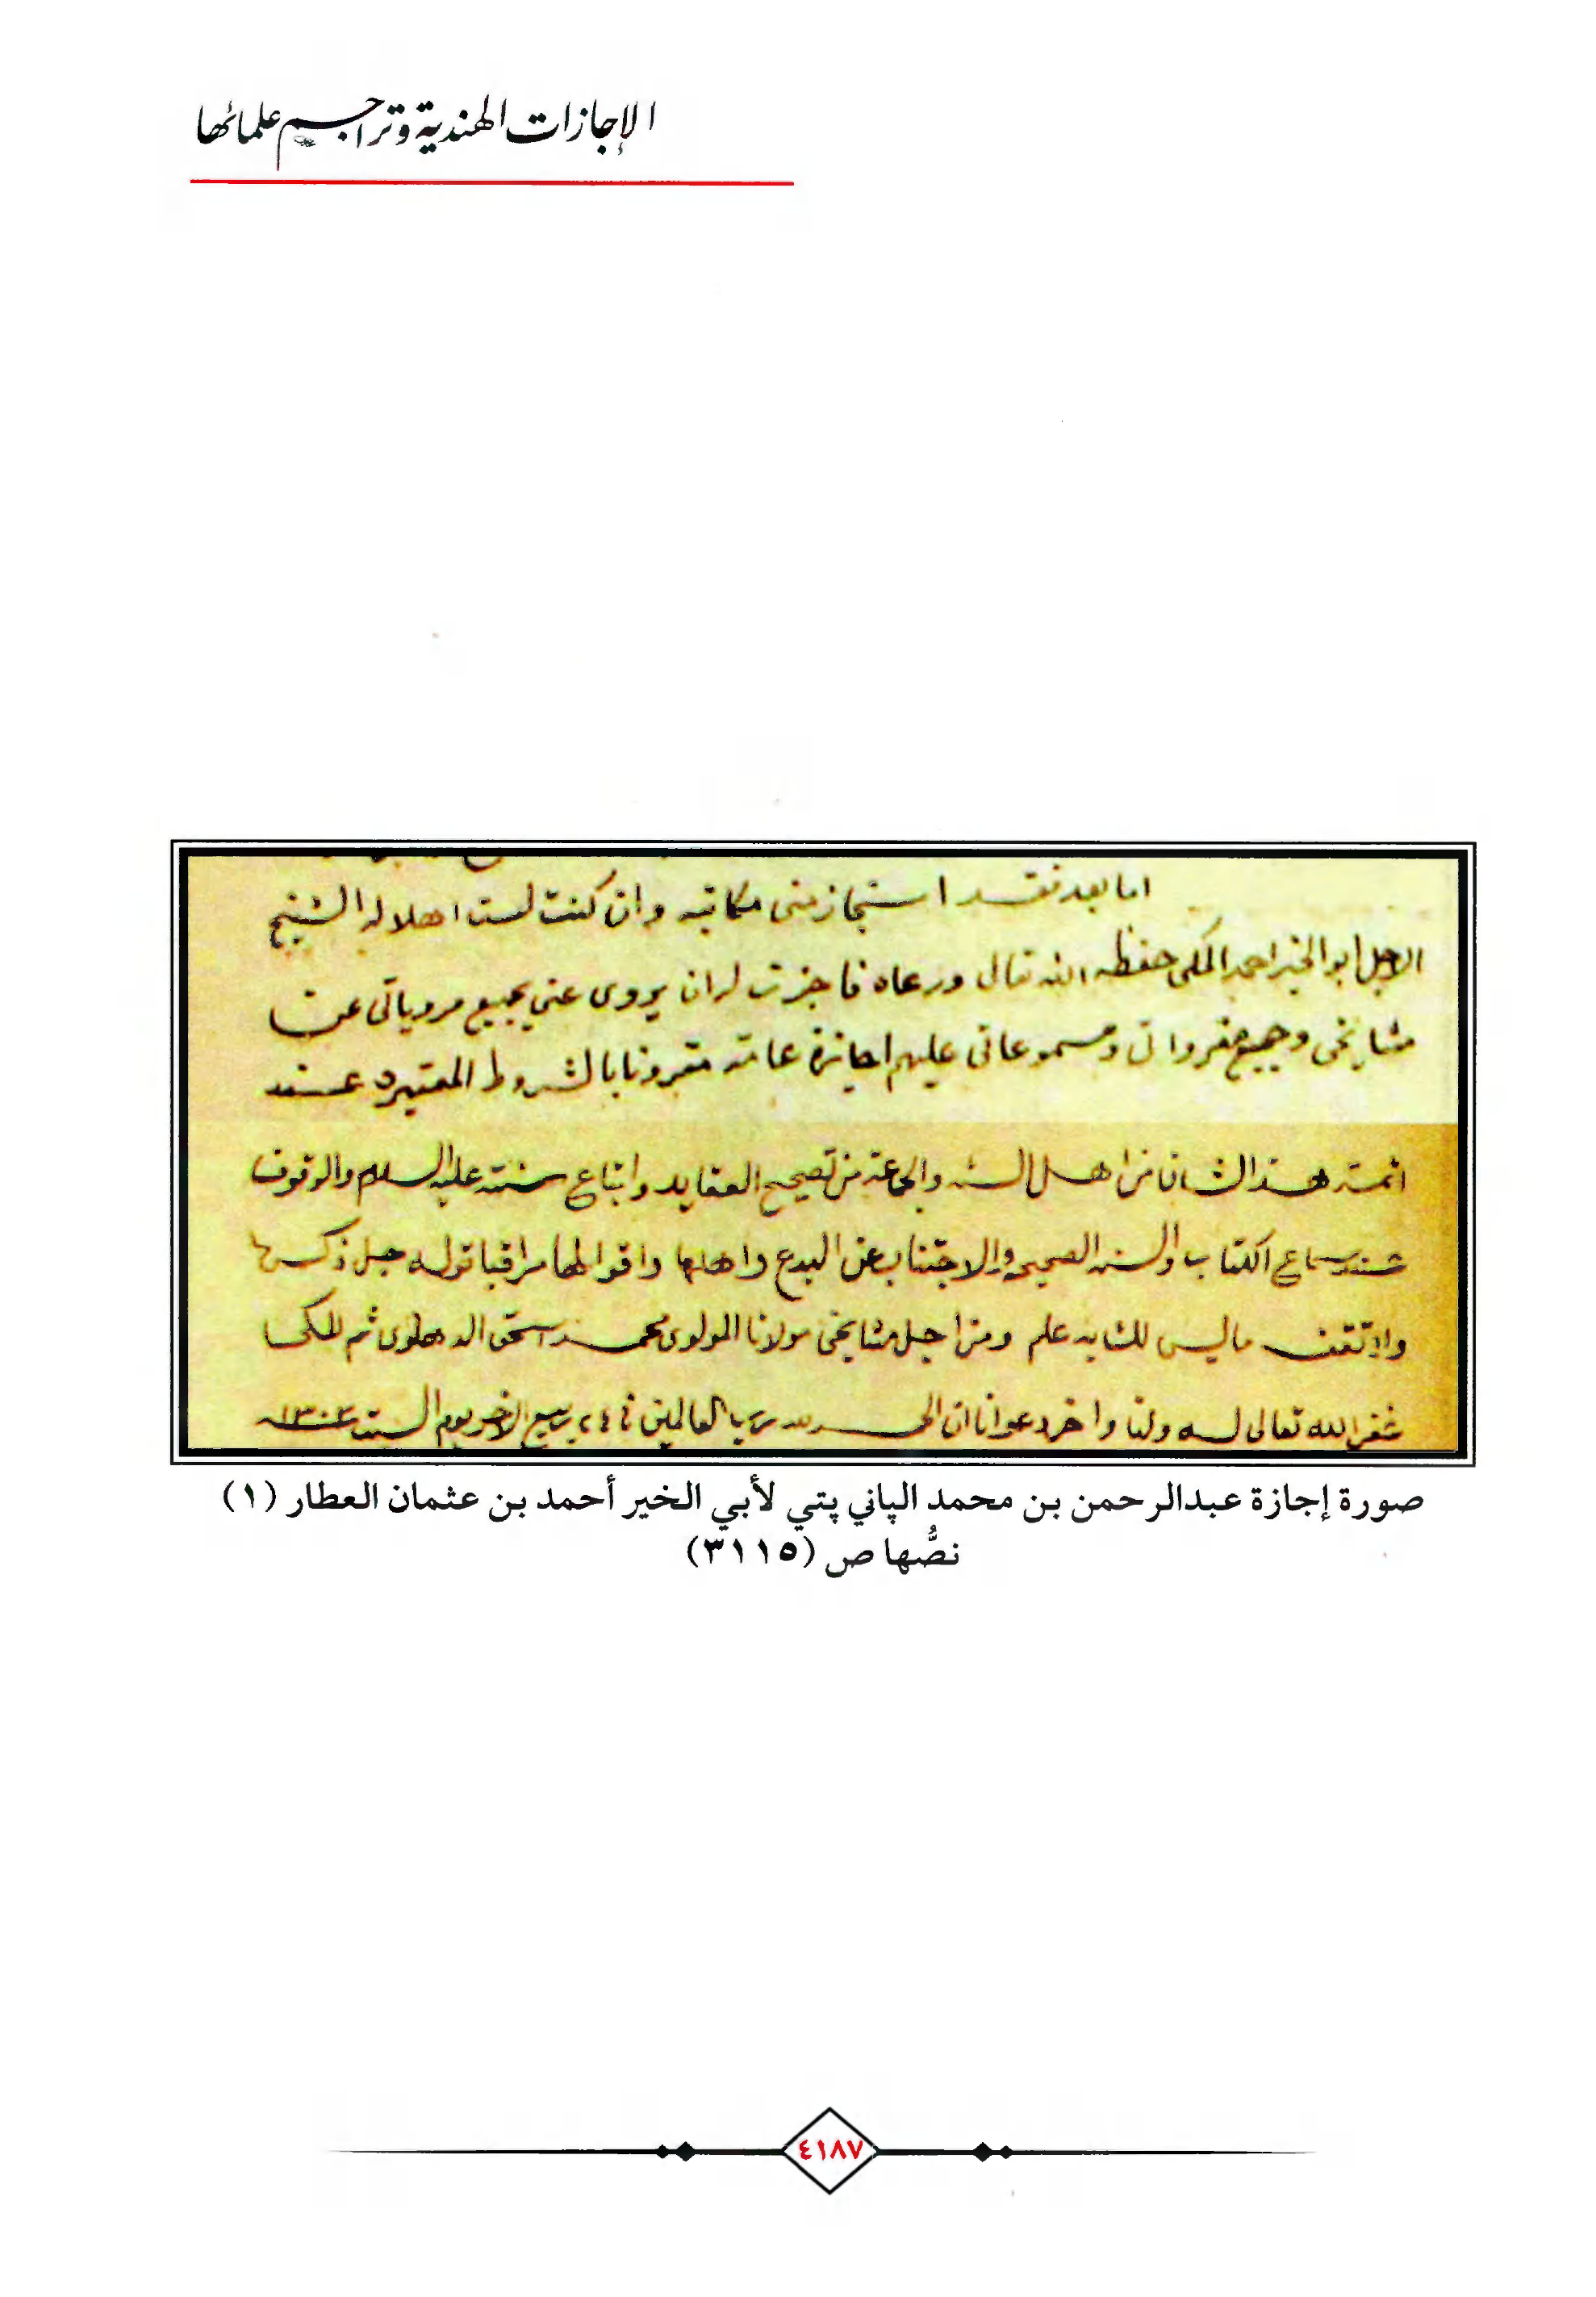 الإجازات الهندية وتراجم علمائها
اما بعد فقد استجاز منى مكاتبه وان كنت لست اهلا له الشيخ
الاجل ابو الخير احمد المكى حفظه الله تعالى ورعاه فاجزت له ان يروى عنى بجميع مروياتى عن
مشايخى وجميع مقرواتى ومسموعاتى عليهم اجازة عامة مقرونا بالشروط المعتبره عند
ائمة هذا الشان من اهل السنه والجماعة من تصحيح العقايد واتباع سنته عليه السلام والوقوف
عند سماع الكتاب والسنه الصحيحه والاجتناب عن البدع واهلها واقوالها مراقبا قوله جل ذكره
ولا تقف ما ليس لك به علم ومن اجل مشايخى مولانا المولوى محمد اسحق الدهلوى ثم المكى
غفر الله تعالى له ولنا واخر دعوانا ان الحمد لله رب العالمين فى ٢٤ ربيع الاخر يوم السبت ١٣٠٢
صورة إجازة عبدالرحمن بن محمد الپاني پتي لأبي الخير أحمد بن عثمان العطار (١)
نصُّها ص (٣١١٥)
٤١٨٧